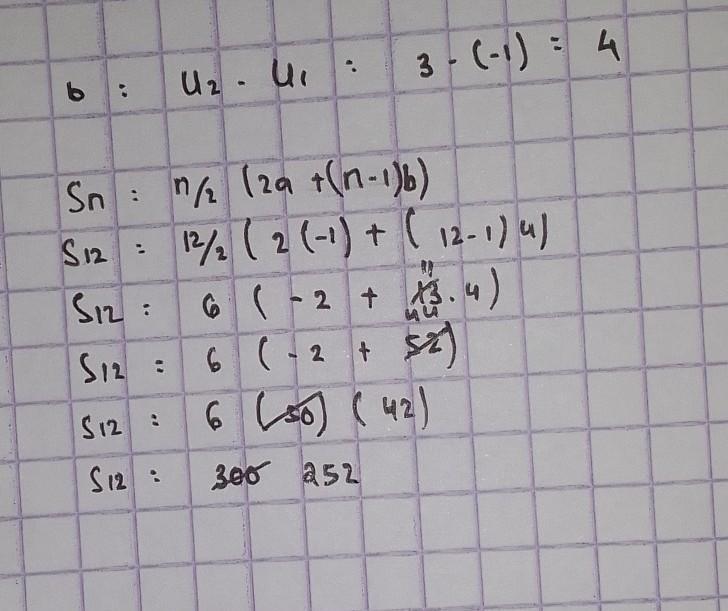 b : U2 - U1 : 3 - (-1) = 4
Sn : n/2 (2a + (n-1)b)
S12 = 12/2 ( 2 (-1) + ( 12-1) 4)
S12 : 6 ( -2 + 13 11 . 4)
S12 : 6 ( -2 + 52 44)
S12 : 6 (50) ( 42)
S12 : 300 252